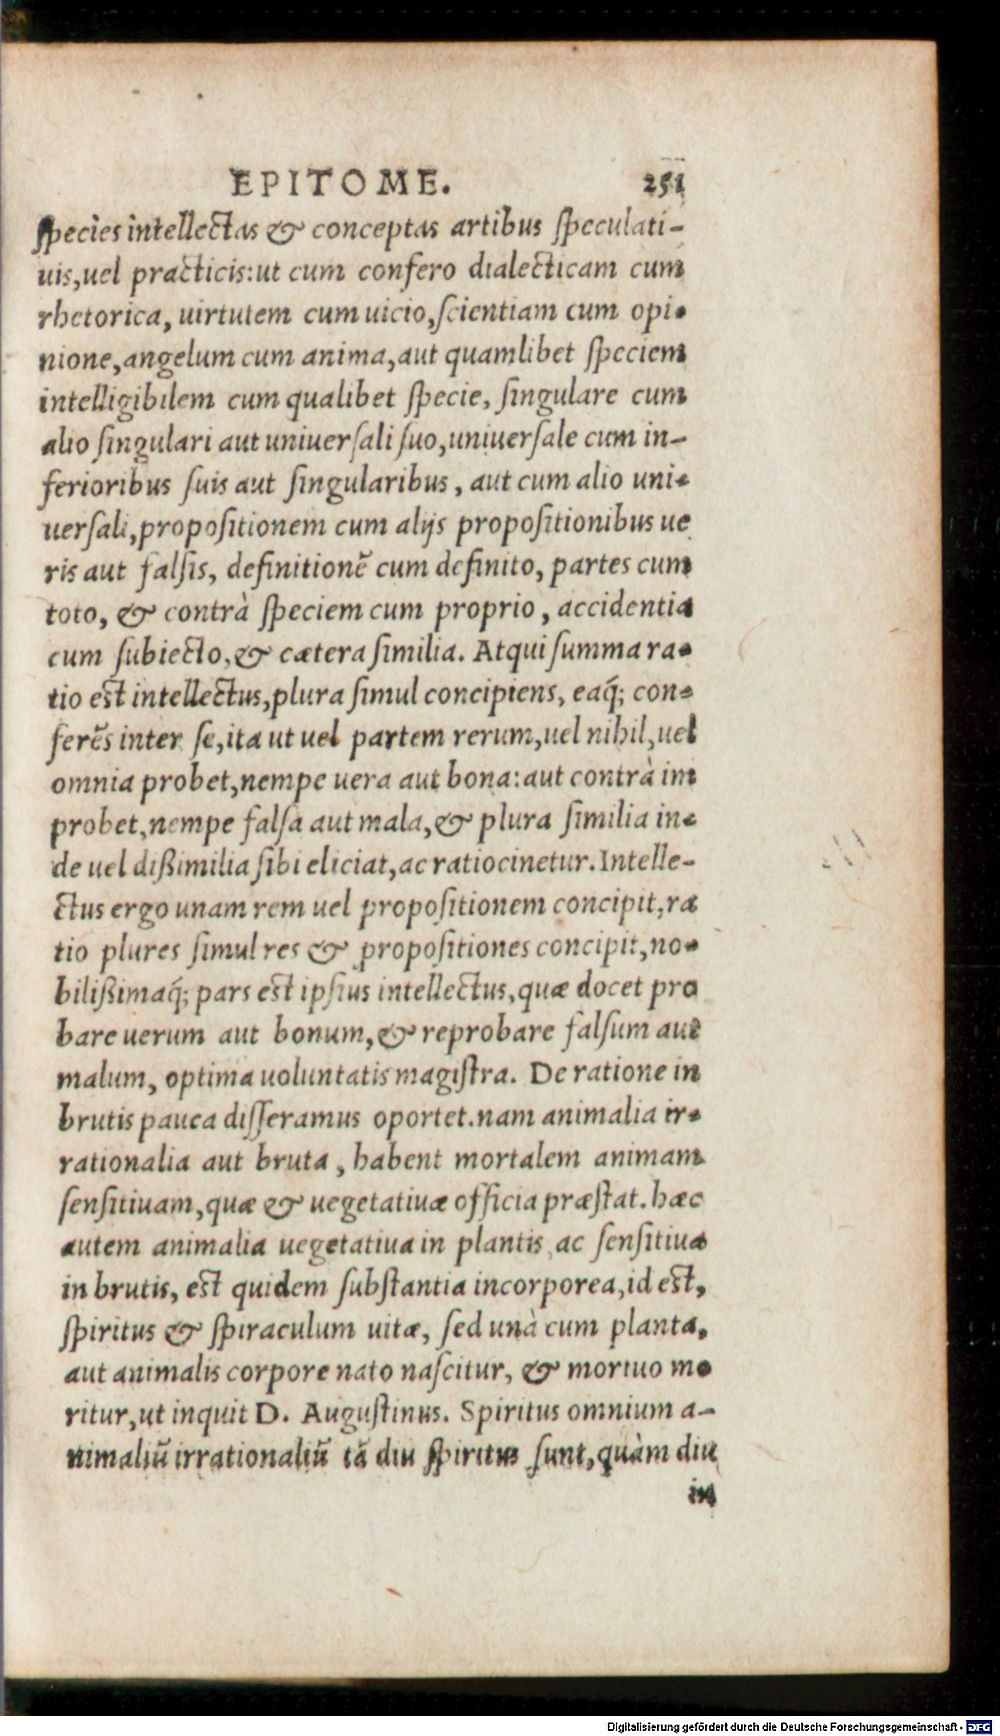 EPITOME. 251
species intellectas & conceptas artibus speculati-
uis, uel practicis: ut cum confero dialecticam cum
rhetorica, uirtutem cum uicio, scientiam cum opi-
nione, angelum cum anima, aut quamlibet speciem
intelligibilem cum qualibet specie, singulare cum
alio singulari aut uniuersali suo, uniuersale cum in-
ferioribus suis aut singularibus, aut cum alio uni-
uersali, propositionem cum alijs propositionibus ue
ris aut falsis, definitionē cum definito, partes cum
toto, & contrà speciem cum proprio, accidentia
cum subiecto, & cætera similia. Atqui summa ra-
tio est intellectus, plura simul concipiens, eaq́; con-
ferēs inter se, ita ut uel partem rerum, uel nihil, uel
omnia probet, nempe uera aut bona: aut contrà im
probet, nempe falsa aut mala, & plura similia in-
de uel dißimilia sibi eliciat, ac ratiocinetur. Intelle-
ctus ergo unam rem uel propositionem concipit, ra
tio plures simul res & propositiones concipit, no-
bilißimaq́; pars est ipsius intellectus, quæ docet pro
bare uerum aut bonum, & reprobare falsum aut
malum, optima uoluntatis magistra. De ratione in
brutis pauca disseramus oportet. nam animalia ir-
rationalia aut bruta, habent mortalem animam
sensitiuam, quæ & uegetatiuæ officia præstat. hæc
autem animalia uegetatiua in plantis, ac sensitiua
in brutis, est quidem substantia incorporea, id est,
spiritus & spiraculum uitæ, sed unà cum planta,
aut animalis corpore nato nascitur, & mortuo mo
ritur, ut inquit D. Augustinus. Spiritus omnium a-
nimaliū irrationaliū tā diu spiritus sunt, quàm diu
in
Digitalisierung gefördert durch die Deutsche Forschungsgemeinschaft - DFG